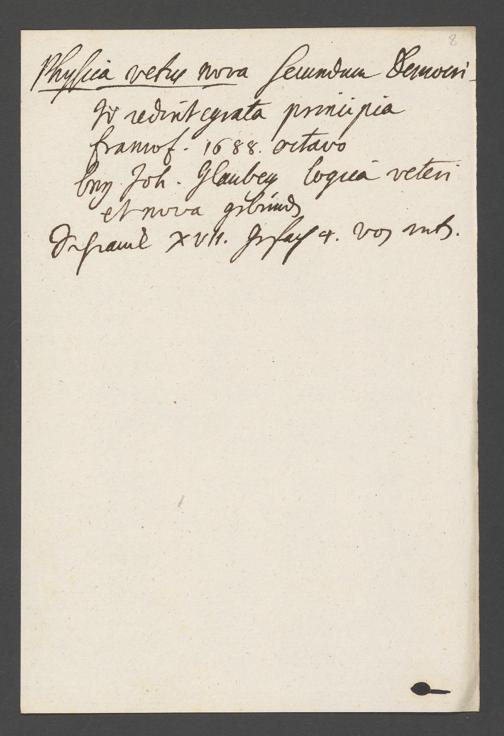 8
Physica vetus nova secundum Democri-
ti redintegrata principia
francof. 1688. octavo
bey Joh. Glaubeÿ logica veteri
et nova gebunds
Schranck XVII. 4. von unt.